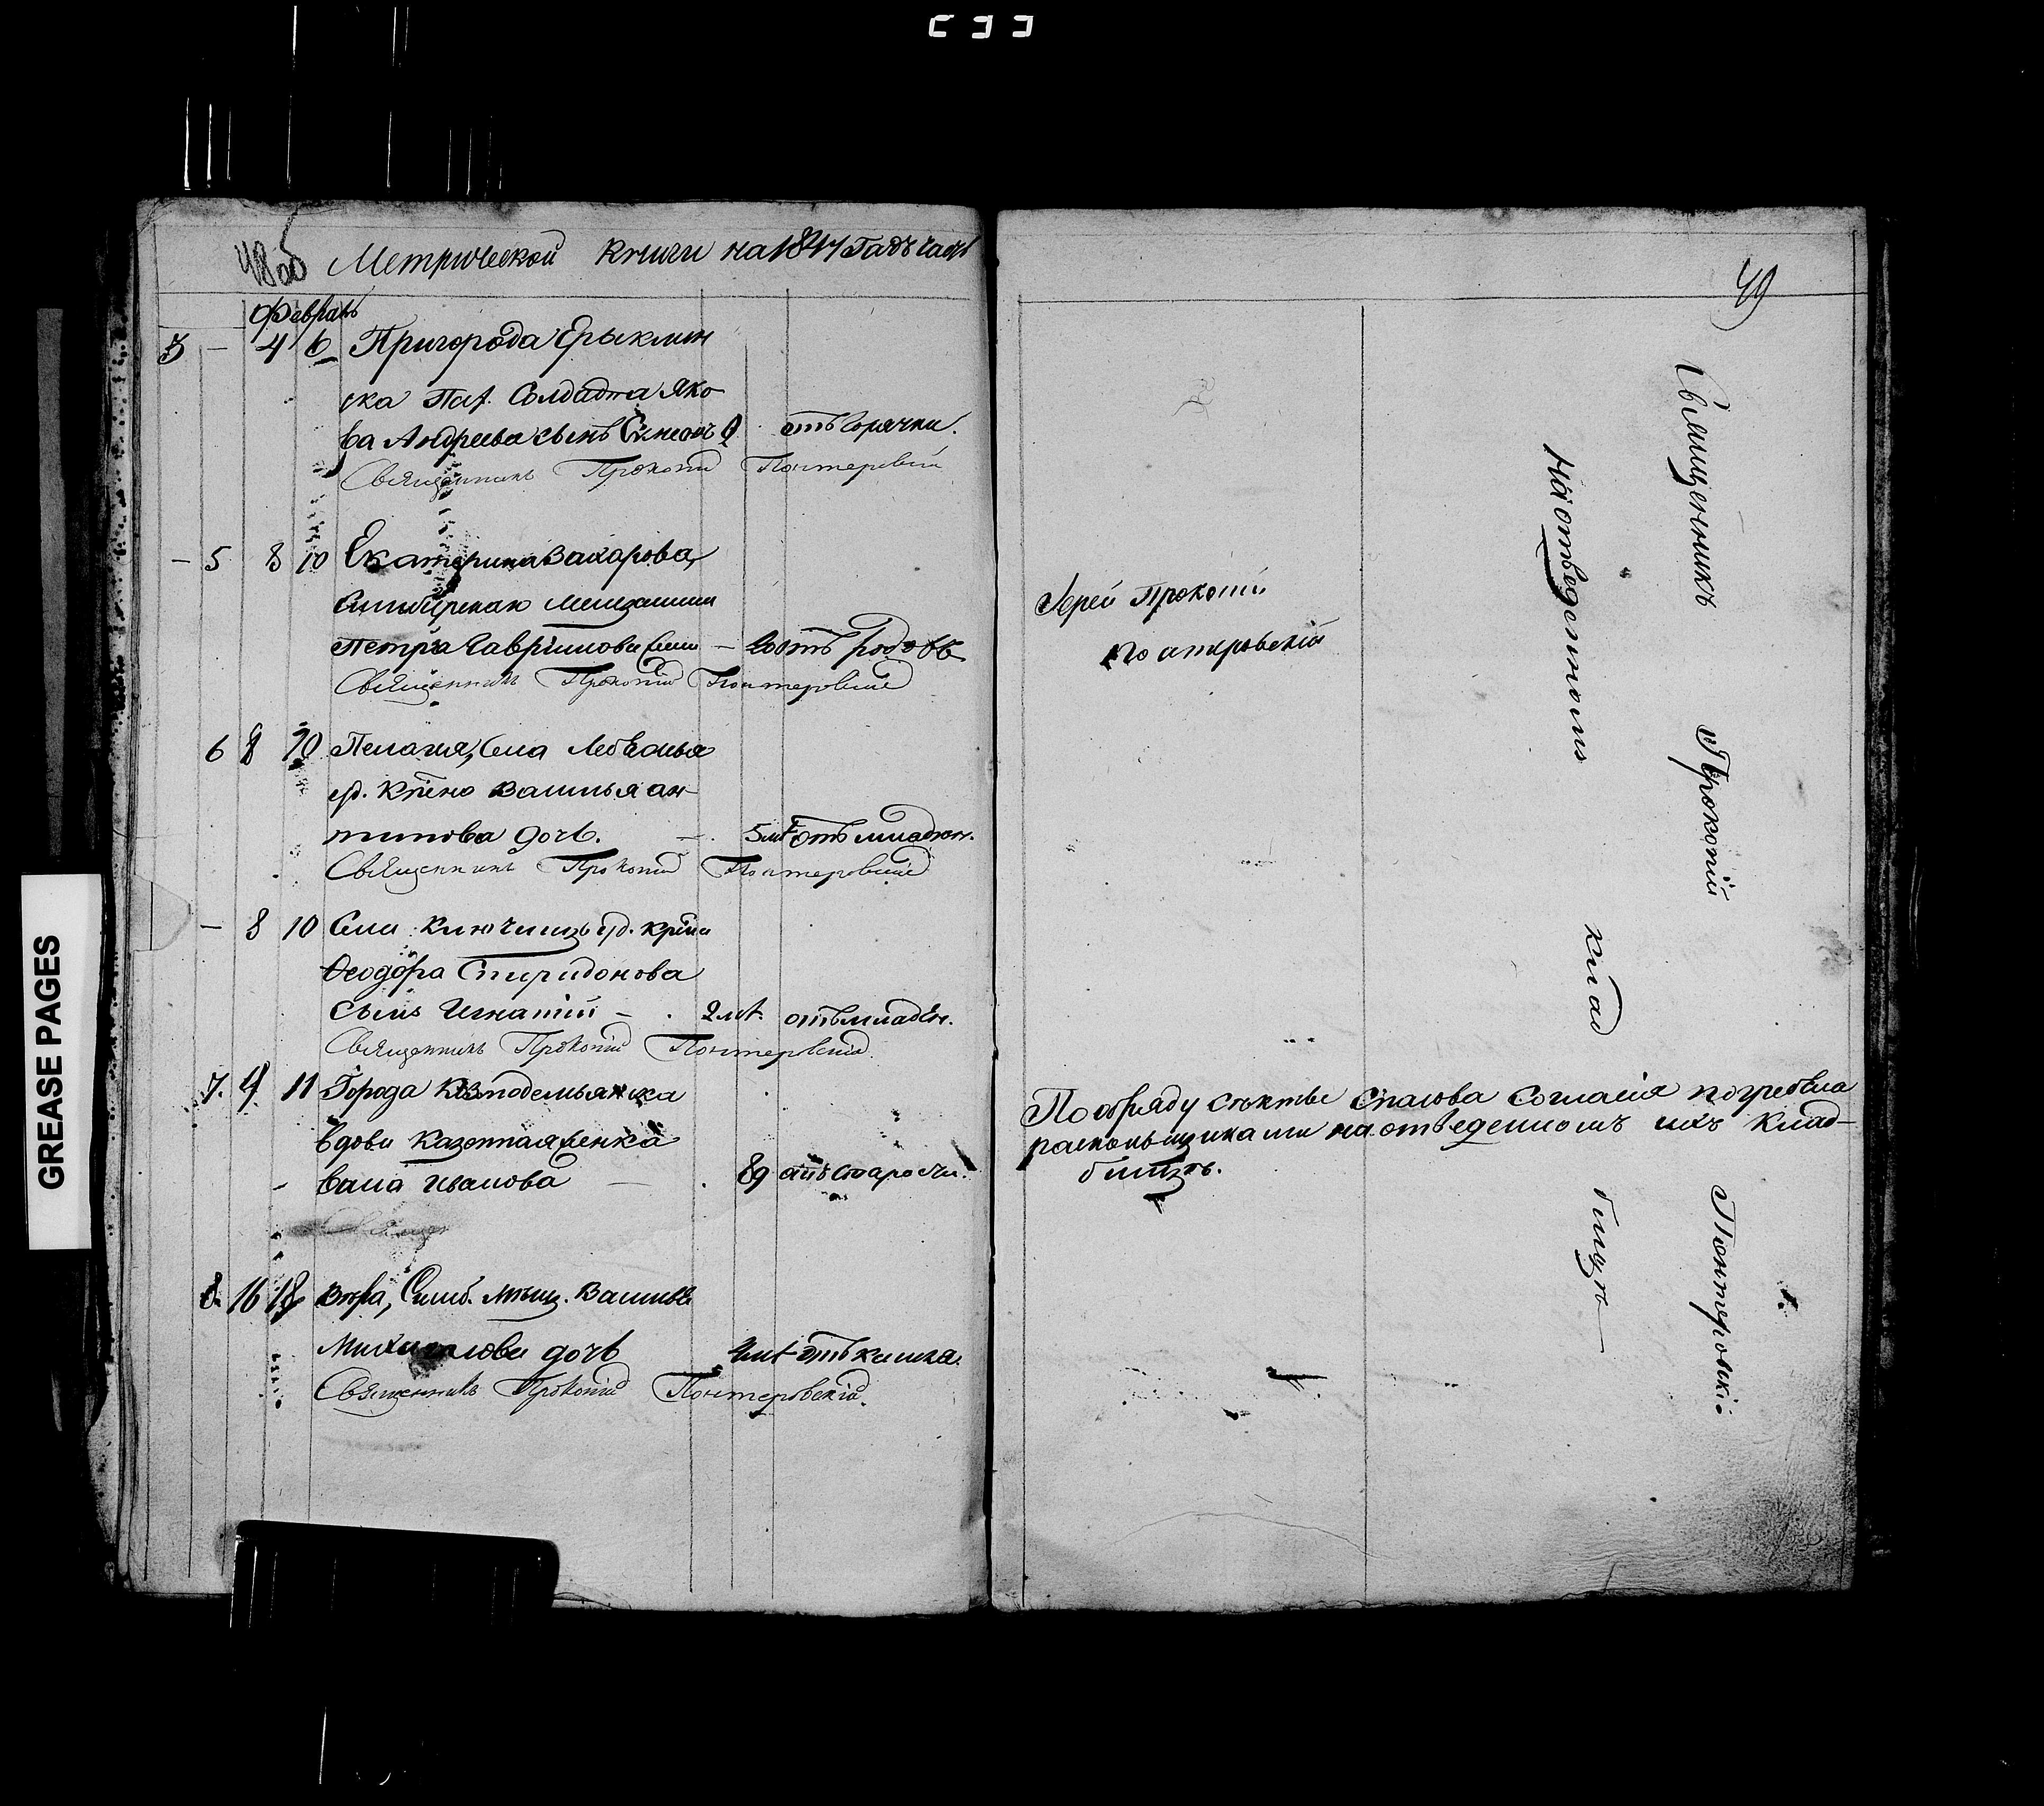 48об Метрической книги на 1847 Годъ часть
Февраль
3 — 4 6 Пригорода Ерыклин
ска Солдата Яко
ва Андреева сынъ Симеонъ 9 отъ горячки.
Священникъ Прокопій Пантеровскій
— 5 8 10 Екатерина Захарова,
Симбирскаго мещанина
Петра Гавриилова жена — 20 отъ родовъ
Священникъ Прокопій Пантеровскій
6 8 10 Пелагия, Села
уд. Крѣно Василья Ан
типова дочь. — 5 лѣт отъ младен.
Священникъ Прокопій Пантеровскій
— 8 10 Села Ключищъ уд. крѣна
Ѳеодора Спиридонова
сынъ Игнатій — 2 лѣт. отъ младен.
Священникъ Прокопій Пантеровскій
7. 9 11 Города Козмодемьянска
вдова Казенная
Иванова — 89 отъ старости.
8. 16 18 Вѣра, Симб. мѣщ. Василья
Михайлова дочь 2 лѣт отъ кашля.
Священникъ Прокопій Пантеровскій.
49
Іерей Прокопій
Пантеровскій
По обряду секты Спасова Согласія погребена
раскольщиками на отведенномъ ихъ клад-
бищѣ.
На отведенномъ клад бищѣ —
Священникъ Прокопій Пантеровскій
GREASE PAGES